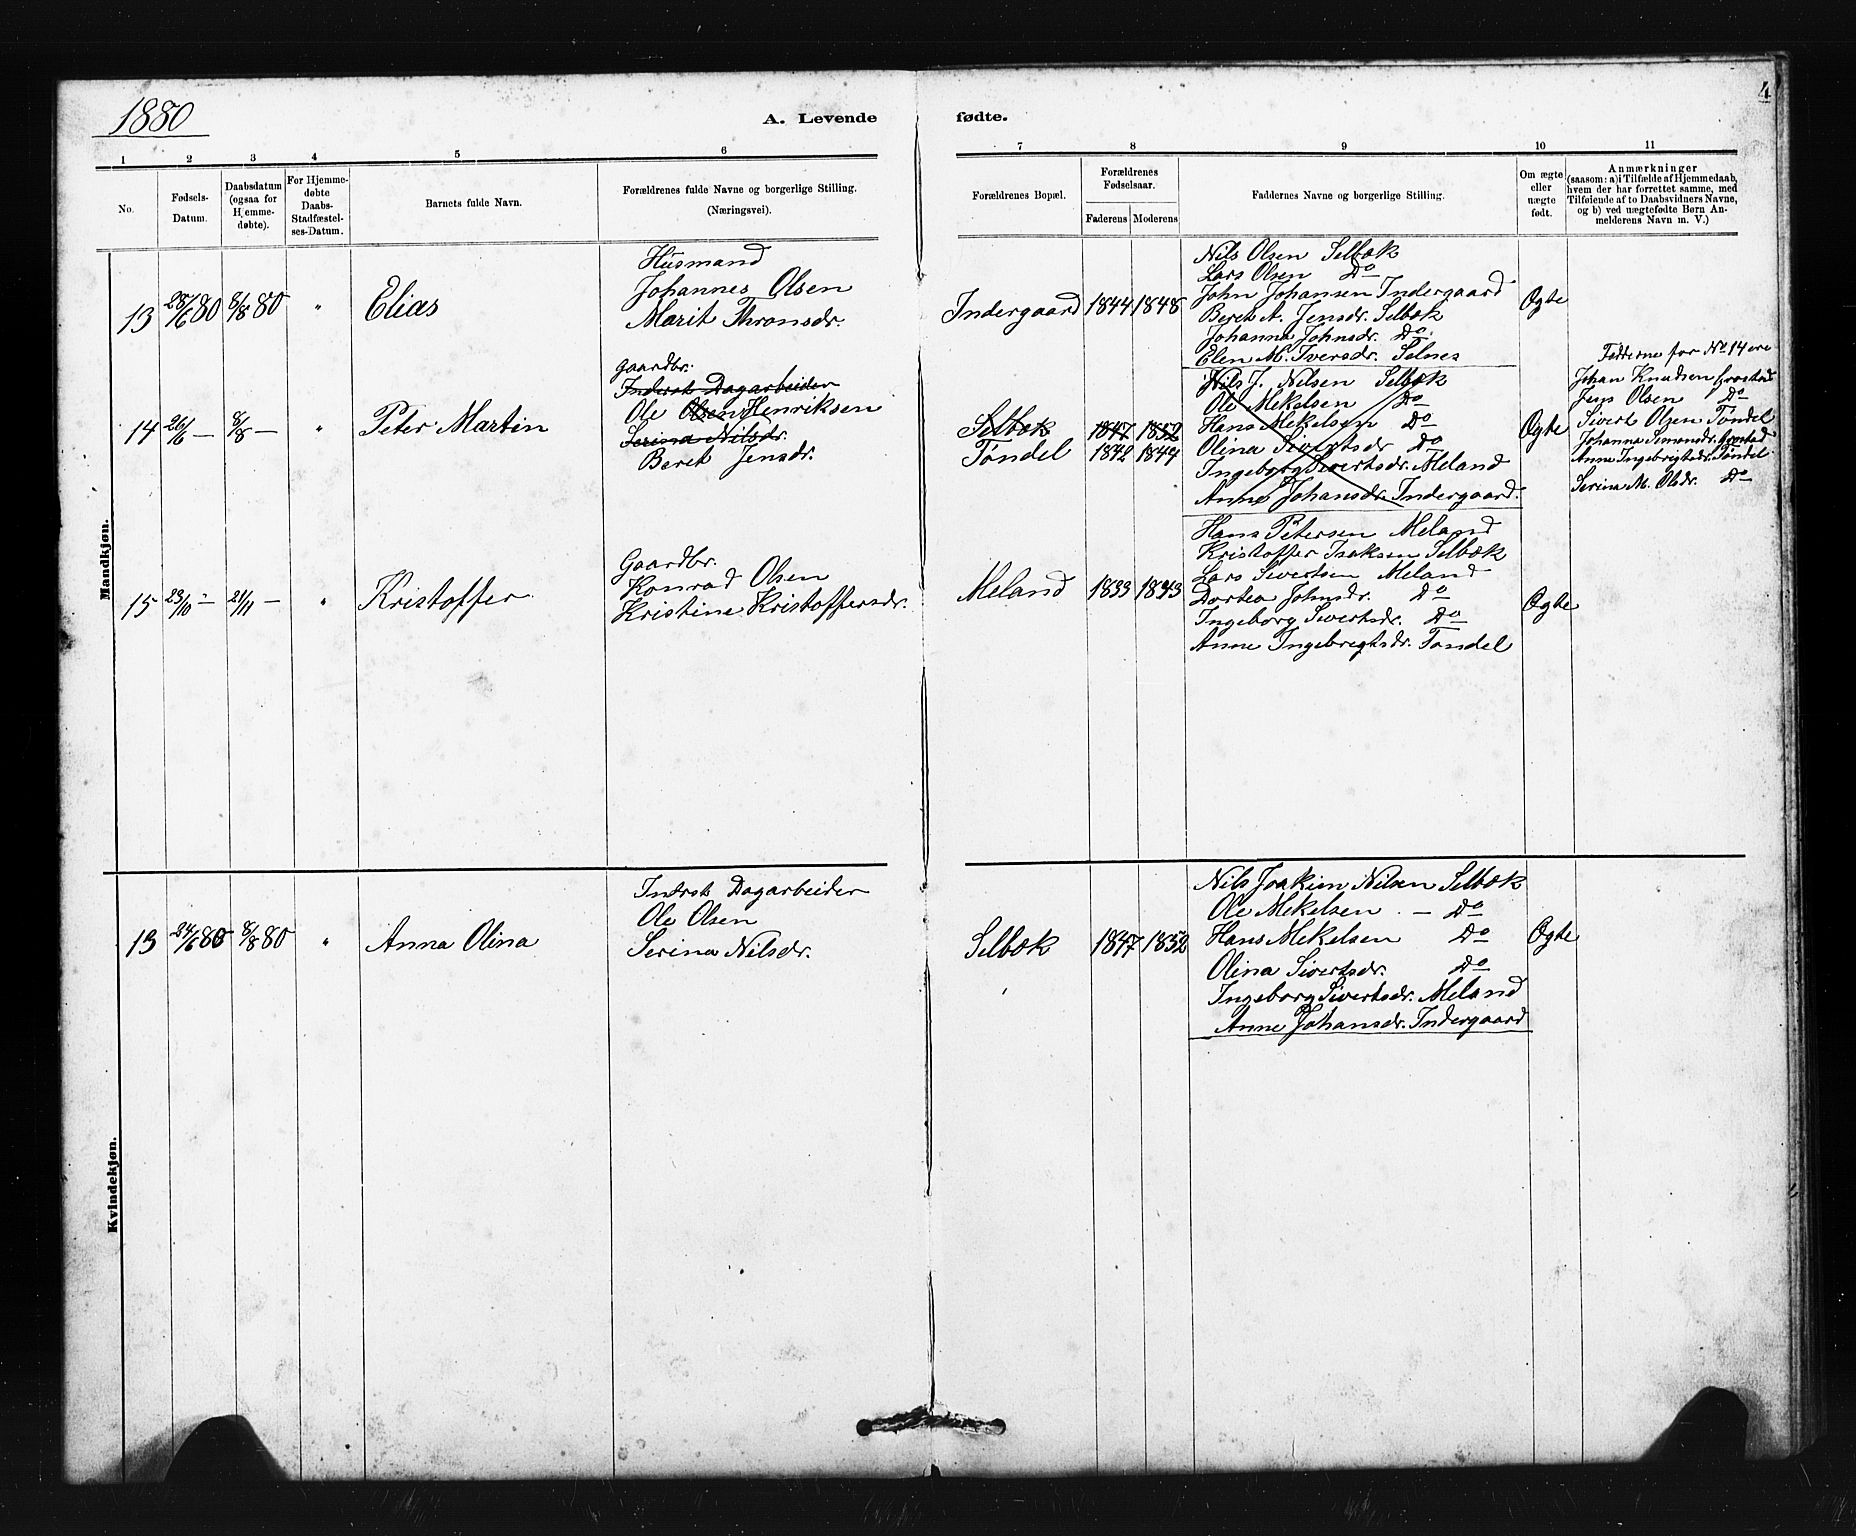 1880
A. Levende fødte.
4
1 2 3 4 5 6 7 8 9 10 11
No.
Fødsels-
Datum.
Daabsdatum
(ogsaa for
Hjemme-
døbte).
For Hjemme-
døbte
Daabs-
Stadfæstel-
ses-Datum.
Barnets fulde Navn.
Forældrenes fulde Navne og borgerlige Stilling.
(Næringsvei).
Forældrenes Bopæl.
Forældrenes
Fødselsaar.
Faderens Moderens
Faddernes Navne og borgerlige Stilling.
Om ægte
eller
uægte
født.
Anmærkninger
(saasom: a) i Tilfælde af Hjemmedaab,
hvem der har forrettet samme, med
Tilføiende af to Daabsvidners Navne,
og b) ved uægtefødte Børn An-
melderens Navn m. V.)
Mandkjøn.
13 28/6 80 8/8 80 " Elias
Husmand
Johannes Olsen
Marit Thronsdr.
Indergaard 1844 1848
Nils Olsen Selbæk
Lars Olsen Do
John Johansen Indergaard
Beret A. Jensdr. Selbæk
Johanna Johnsdr. Do
Elen M. Iversdr. Selnes
Ægte
14 26/6 — 8/8 — " Peter Martin
Gaardbr.
Inderst Dagarbeider
Ole Olsen Henriksen
Serina Nilsdr.
Beret Jensdr.
Selbæk 1847 1852
Tøndel 1842 1844
Nils J. Nilsen Selbæk
Ole Mekelsen Do
Hans Mekelsen Do
Olina Sivertsdr Do
Ingeborg Sivertsdr. Meland
Anne Johansdr. Indergaard.
Ægte
Fadderne for No 14 ere
Johan Knudsen
Jens Olsen Do
Sivert Olsen Tøndel
Johanna Simonsdr.
Anne Ingebrigtsdr. Tøndel
Serina M. Olsdr. Do
15 23/10 - 21/11 — " Kristoffer
Gaardbr.
Konrad Olsen
Kristine Kristoffersdr.
Meland 1833 1843
Hans Petersen Meland
Kristoffer Isaksen Selbæk
Lars Sivertsen Meland
Dortea Johnsdr. Do
Ingeborg Sivertsdr. Do
Anne Ingebregtsdr. Tøndel
Ægte
Kvindekjøn.
13 24/6 80 8/8 80 " Anna Olina
Indrst Dagarbeider
Ole Olsen
Serina Nilsdr.
Selbæk 1847 1852
Nils Joakim Nilsen Selbæk
Ole Mekelsen — Do
Hans Mekelsen Do
Olina Sivertsdr. Do
Ingeborg Sivertsdr. Meland
Anne Johansdr. Indergaard
Ægte